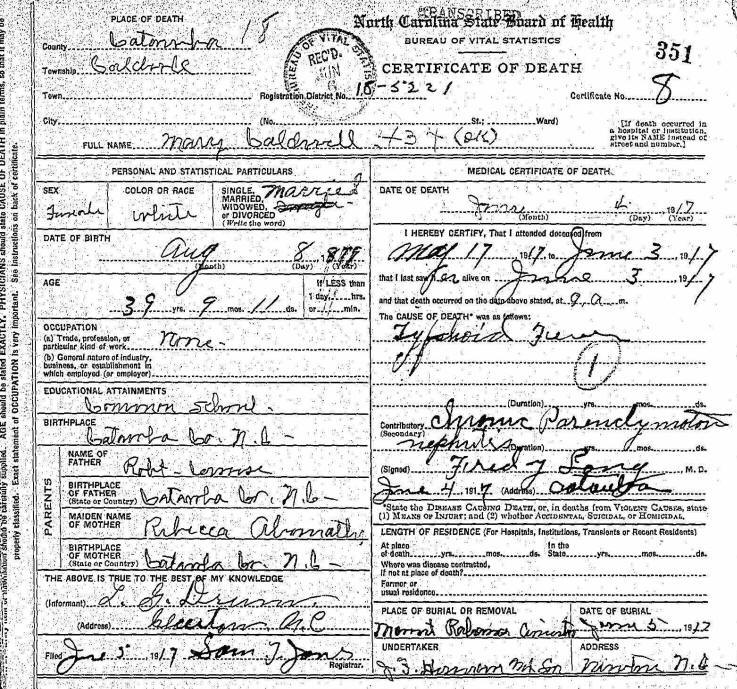 TRANSCRIBED
North Carolina State Board of Health
BUREAU OF VITAL STATISTICS
351
CERTIFICATE OF DEATH
PLACE OF DEATH
18
County Catawba
Township Caldwell
Town
BUREAU OF VITAL STATIS
REC'D.
JUN
6
Registration District No. 18-5221
Certificate No. 8
City (No. St.; Ward)
[If death occurred in a hospital or institution, give its NAME instead of street and number.]
FULL NAME Mary Caldwell (OK)
PERSONAL AND STATISTICAL PARTICULARS
SEX
Female
COLOR OR RACE
White
SINGLE, MARRIED, WIDOWED, or DIVORCED (Write the word)
Married
DATE OF BIRTH
Aug 8
(Month) (Day) (Year)
AGE
39 yrs. 9 mos. 11 ds.
If LESS than
1 day, hrs.
or min.
OCCUPATION
(a) Trade, profession, or particular kind of work None
(b) General nature of industry, business, or establishment in which employed (or employer)
EDUCATIONAL ATTAINMENTS
Common School
BIRTHPLACE
Catawba Co. N.C.
PARENTS
NAME OF FATHER
Robt
BIRTHPLACE OF FATHER (State or Country) Catawba Co. N.C.
MAIDEN NAME OF MOTHER
Ribicca Abernathy
BIRTHPLACE OF MOTHER (State or Country) Catawba Co. N.C.
THE ABOVE IS TRUE TO THE BEST OF MY KNOWLEDGE
(Informant) L. G. Drum
(Address) N C
Filed June 5 1917 Sam T. Jones
Registrar.
MEDICAL CERTIFICATE OF DEATH
DATE OF DEATH
June 4 1917
(Month) (Day) (Year)
I HEREBY CERTIFY, That I attended deceased from
May 17 1917, to June 3 1917
that I last saw her alive on June 3 1917
and that death occurred on the date above stated, at 9 a m.
The CAUSE OF DEATH* was as follows:
Typhoid Fever
1
(Duration) yrs. mos. ds.
Contributory Chronic
(Secondary)
nephritis (Duration) yrs. mos. ds.
(Signed) Fred Y Long M. D.
June 4 1917 (Address) Catawba
*State the DISEASE CAUSING DEATH, or, in deaths from VIOLENT CAUSES, state
(1) MEANS OF INJURY; and (2) whether ACCIDENTAL, SUICIDAL, or HOMICIDAL.
LENGTH OF RESIDENCE (For Hospitals, Institutions, Transients or Recent Residents)
At place of death yrs. mos. ds. In the State yrs. mos. ds.
Where was disease contracted,
If not at place of death?
Former or
usual residence
PLACE OF BURIAL OR REMOVAL
Mount
DATE OF BURIAL
June 5 1917
UNDERTAKER
ADDRESS
Newton N.C.
AGE should be stated EXACTLY. PHYSICIANS should state CAUSE OF DEATH in plain terms, so that it may be
properly classified. Exact statement of OCCUPATION is very important. See instructions on back of certificate.